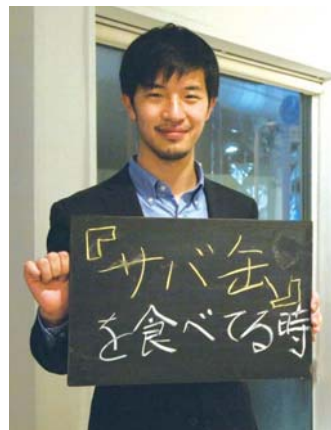 『サバ缶』
を食べてる時